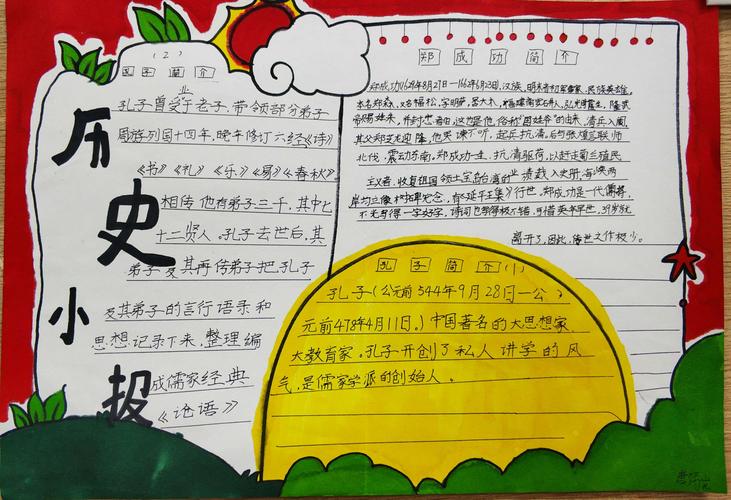 历史小报
(2)
孔子简介
孔子曾受业于老子,带领部分弟子
周游列国十四年,晚年修订六经《诗》
《书》《礼》《乐》《易》《春秋》
相传他有弟子三千,其中七
十二贤人。孔子去世后,其
弟子及其再传弟子把孔子
及其弟子的言行语录和
思想记录下来,整理编
成儒家经典
《论语》
郑成功简介
郑成功(1624年8月27日—1662年6月23日,汉族,明末清初军事家,民族英雄,
本名森,又名福松,字明俨,号大木,福建南安石井人,弘光时监生,隆武
帝赐姓朱,并封忠孝伯,这也是他俗称"国姓爷"的由来,清兵入闽,
其父郑芝龙迎降,他哭谏不听,起兵抗清,后与张煌言联师
北伐,震动东南,郑成功一生,抗清驱荷,以赶走荷兰殖民
主义者,收复祖国领土宝岛台湾的业绩载入史册,海峡两
岸均立像树碑纪念,有《延平王集》行世,郑成功是一代儒将,
不光写得一手好字,诗词也写得极不错,可惜英年早世,39岁就
离开了,因此,传世之作极少。
孔子简介(1)
孔子(公元前544年9月28日一公
元前478年4月11日。)中国著名的大思想家、
大教育家。孔子开创了私人讲学的风
气,是儒家学派的创始人。